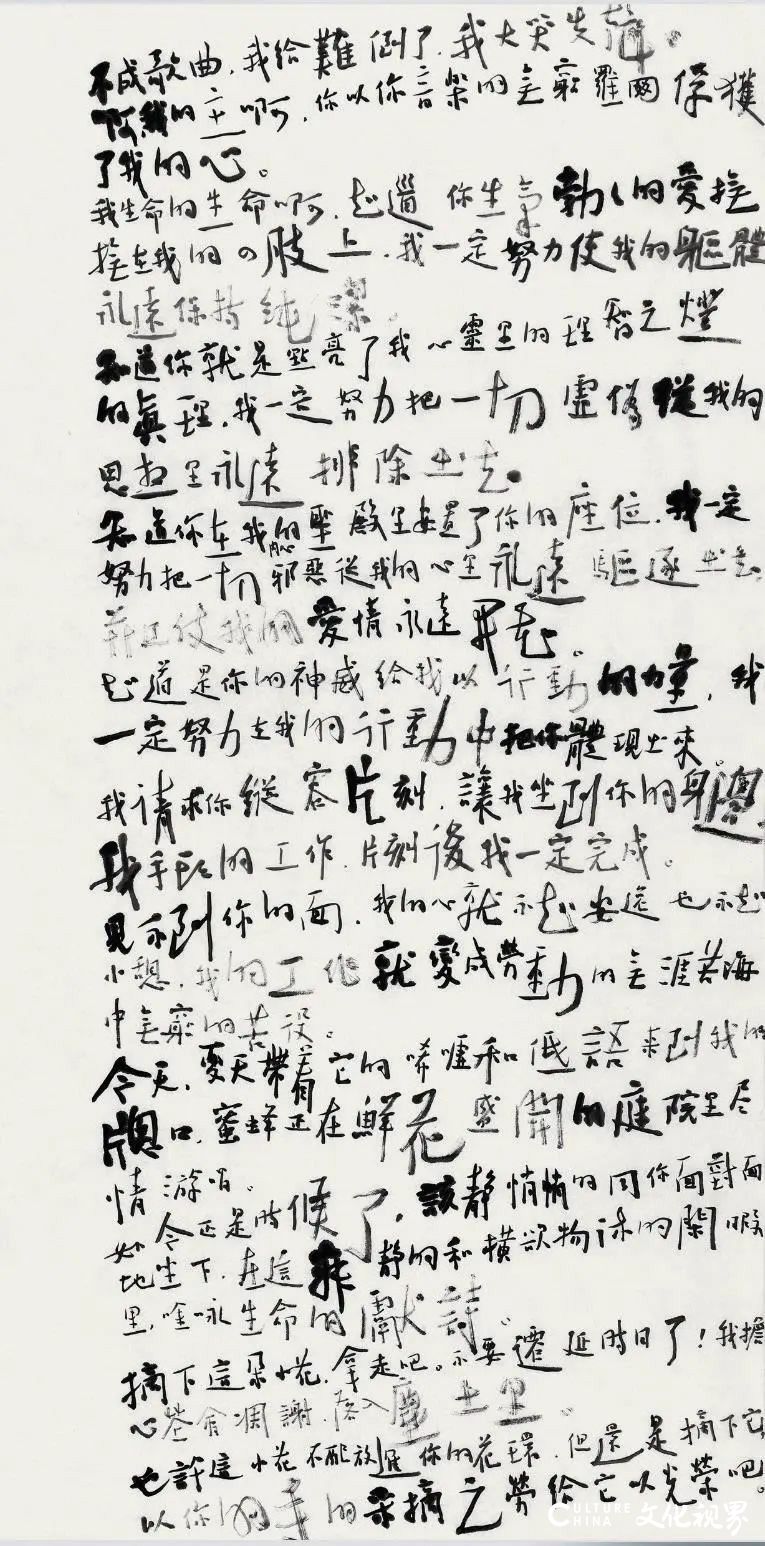 不成歌曲，我给難倒了，我大哭失聲。
啊，我的主啊，你以你音樂的無窮羅網俘獲
了我的心。
我生命的生命啊，知道你生氣勃勃的愛撫
撫在我的四肢上，我一定努力使我的軀體
永遠保持純潔。
知道你就是點亮了我心靈里的理智之燈
的真理，我一定努力把一切虛偽從我的
思想里永遠排除出去。
知道你在我的心聖殿里安置了你的座位，我一定
努力把一切邪惡從我的心里永遠驅逐出去，
并且使我的愛情永遠開花。
知道是你的神威给我以行動的力量，我
一定努力在我的行動中把你體現出來。
我请求你縱容片刻，讓我坐到你的身邊
我手頭的工作，片刻後我一定完成。
見不到你的面，我的心就不知安逸也不知
小憩，我的工作就變成勞動的無涯苦海
中無窮的苦役。
今天，夏天帶着它的唏嘘和低語来到我的
牕口，蜜蜂正在鮮花盛開的庭院里尽
情游唱。
如今正是時候了，該静悄悄的同你面對面
地坐下，在這静的和横欲物诔的閑暇
里，唫咏生命的獻詩。
摘下這朵小花，拿走吧。不要遷延時日了！我擔
心花會凋謝，落入塵土里。
也許這小花不配放進你的花環，但還是摘下它，
以你的手的采摘之勞给它以光榮吧。
CULTURE CHINA 文化视界